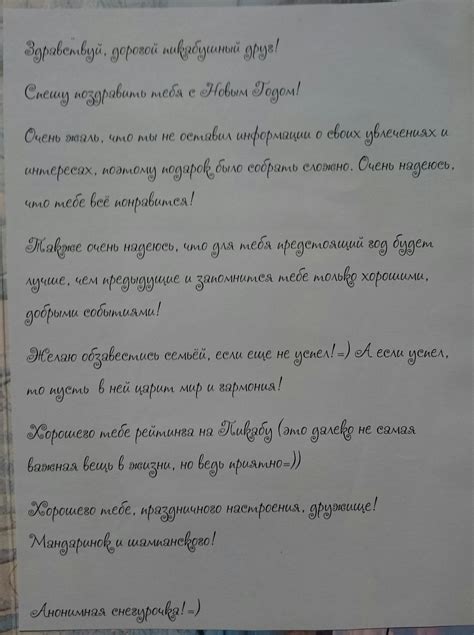 Здравствуй, дорогой пикабушный друг!
Спешу поздравить тебя с Новым Годом!
Очень жаль, что ты не оставил информации о своих увлечениях и
интересах, поэтому подарок было собрать сложно. Очень надеюсь,
что тебе всё понравится!
Также очень надеюсь, что для тебя предстоящий год будет
лучше, чем предыдущие и запомнится тебе только хорошими,
добрыми событиями!
Желаю обзавестись семьёй, если еще не успел!=) А если успел,
то пусть в ней царит мир и гармония!
Хорошего тебе рейтинга на Пикабу (это далеко не самая
важная вещь в жизни, но ведь приятно=))
Хорошего тебе, праздничного настроения, дружище!
Мандаринок и шампанского!
Анонимная снегурочка!=)